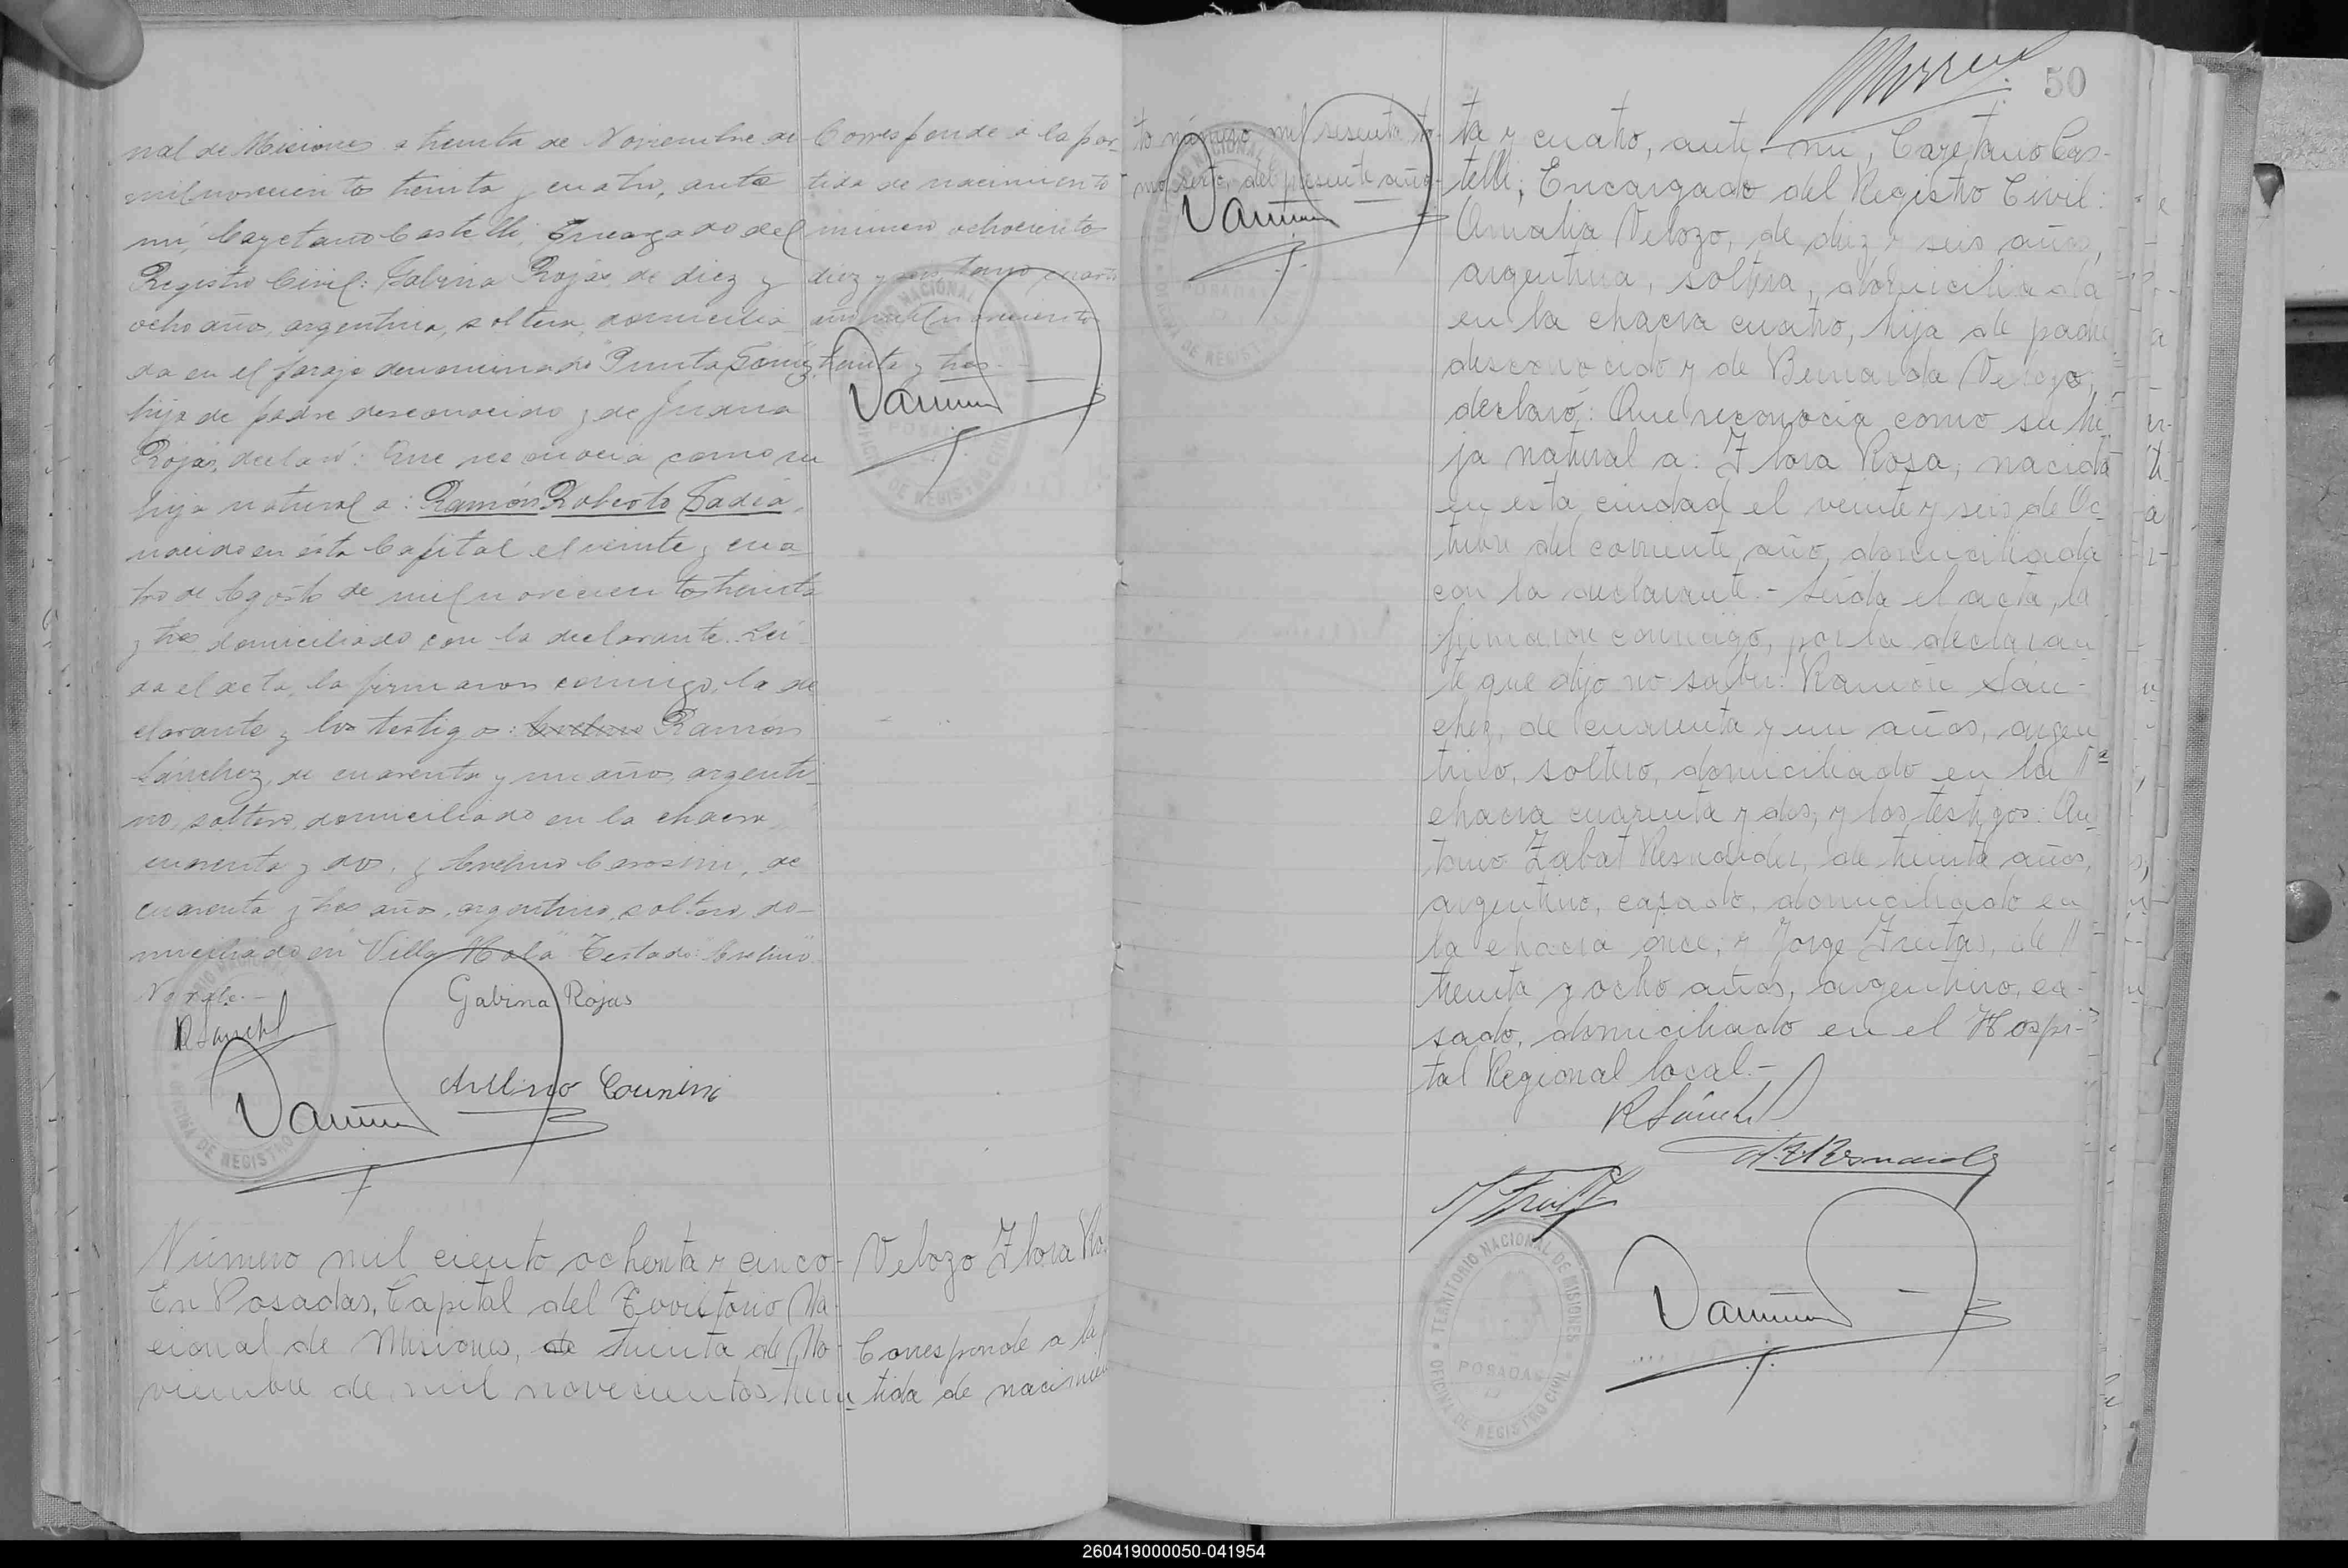 nal de Misiones a treinta de Noviembre de
mil novecientos treinta y cuatro, ante
mí, Cayetano Castelli, Encargado del
Registro Civil: Gabina Rojas, de diez y
ocho años, argentina, soltera, domicilia
da en el paraje denominado "Punta Gómez",
hija de padre desconocido y de Juana
Rojas, declaró: Que reconocía como su
hijo natural a: Ramón Roberto Gadia,
nacido en esta Capital el veinte y cua
tro de Agosto de mil novecientos treinta
y tres domiciliado con la declarante. Leí
da el acta, la firmaron conmigo, la de
clarante y los testigos: Ramón
Sánchez, de cuarenta y un años, argenti
no, soltero, domiciliado en la chacra
cuarenta y dos, y Avelino Carosini, de
cuarenta y tres años, argentino, soltero, do-
miciliado en "Villa Mola" Testado: Avelino.
No vale.-
Corresponde a la par-
tida de nacimiento
número ochociento
diez y seis, tomo cuarto
año mil novecientos
treinta y tres.
Gabina Rojas
R Sánchez
Avelino
OFICINA DE REGISTRO
Número mil ciento ochenta y cinco-
En Posadas, Capital del Territorio Na-
cional de Misiones, a treinta de No-
viembre de mil novecientos trein
Velozo Flora Ro
Corresponde a la
tida de nacimien
50
to número mil sesenta, to-
mo sexto, del presente año-
ta y cuatro, ante mí, Cayetano Cas-
telli, Encargado del Registro Civil:
Amalia Velozo, de diez y seis años,
argentina, soltera, domiciliada
en la chacra cuatro, hija de padre
desconocido y de Bernarda Velozo,
declaró: Que reconocía como su hi
ja natural a: Flora Rosa, nacida
en esta ciudad el veinte y seis de Oc
tubre del corriente año, domiciliada
con la declarante.- Leída el acta, la
firmaron conmigo, por la declaran
te que dijo no saber: Ramón Sán-
chez, de cuarenta y un años, argen
tino, soltero, domiciliado en la
chacra cuarenta y dos, y los testigos: An
tonio Zabat Resnardez, de treinta años,
argentino, casado, domiciliado en
la chacra once; y Jorge Freitas, de
treinta y ocho años, argentino, ca-
sado, domiciliado en el Hospi-
tal Regional local.-
R Sánchez
TERRITORIO NACIONAL DE MISIONES
POSADAS
OFICINA DE REGISTRO CIVIL
260419000050-041954